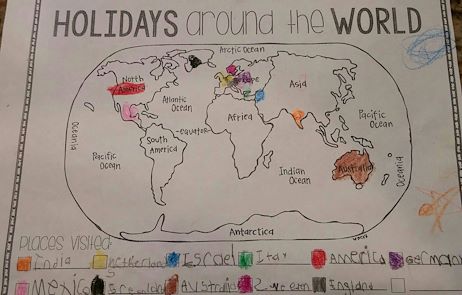 HOLIDAYS around the WORLD
Arctic Ocean
North
America
Asia
Atlantic
Ocean
Pacific
Ocean
Africa
equator
Oceania
South
America
Pacific
Ocean
Indian
Ocean
Australia
Oceania
Antarctica
PLACES VISITED:
India Israel Italy America Germany
Mexico Greenland Australia England